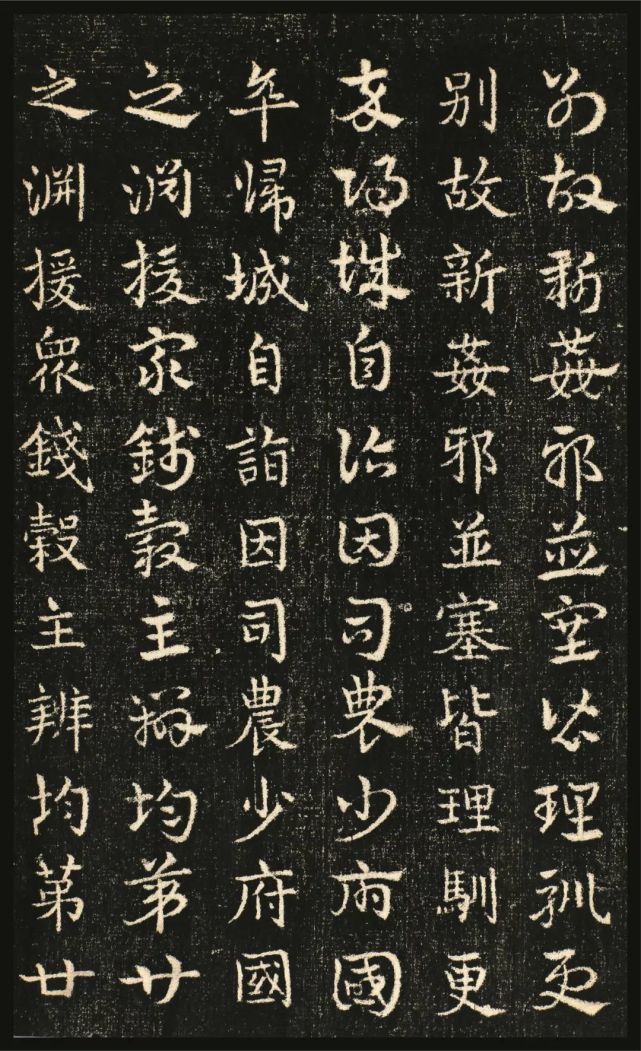 别故新姦邪並塞皆理馴更
别故新姦邪並塞皆理馴更
卒歸城自詣因司農少府國
卒歸城自詣因司農少府國
之淵援眾錢穀主辨均第廿
之淵援眾錢穀主辨均第廿